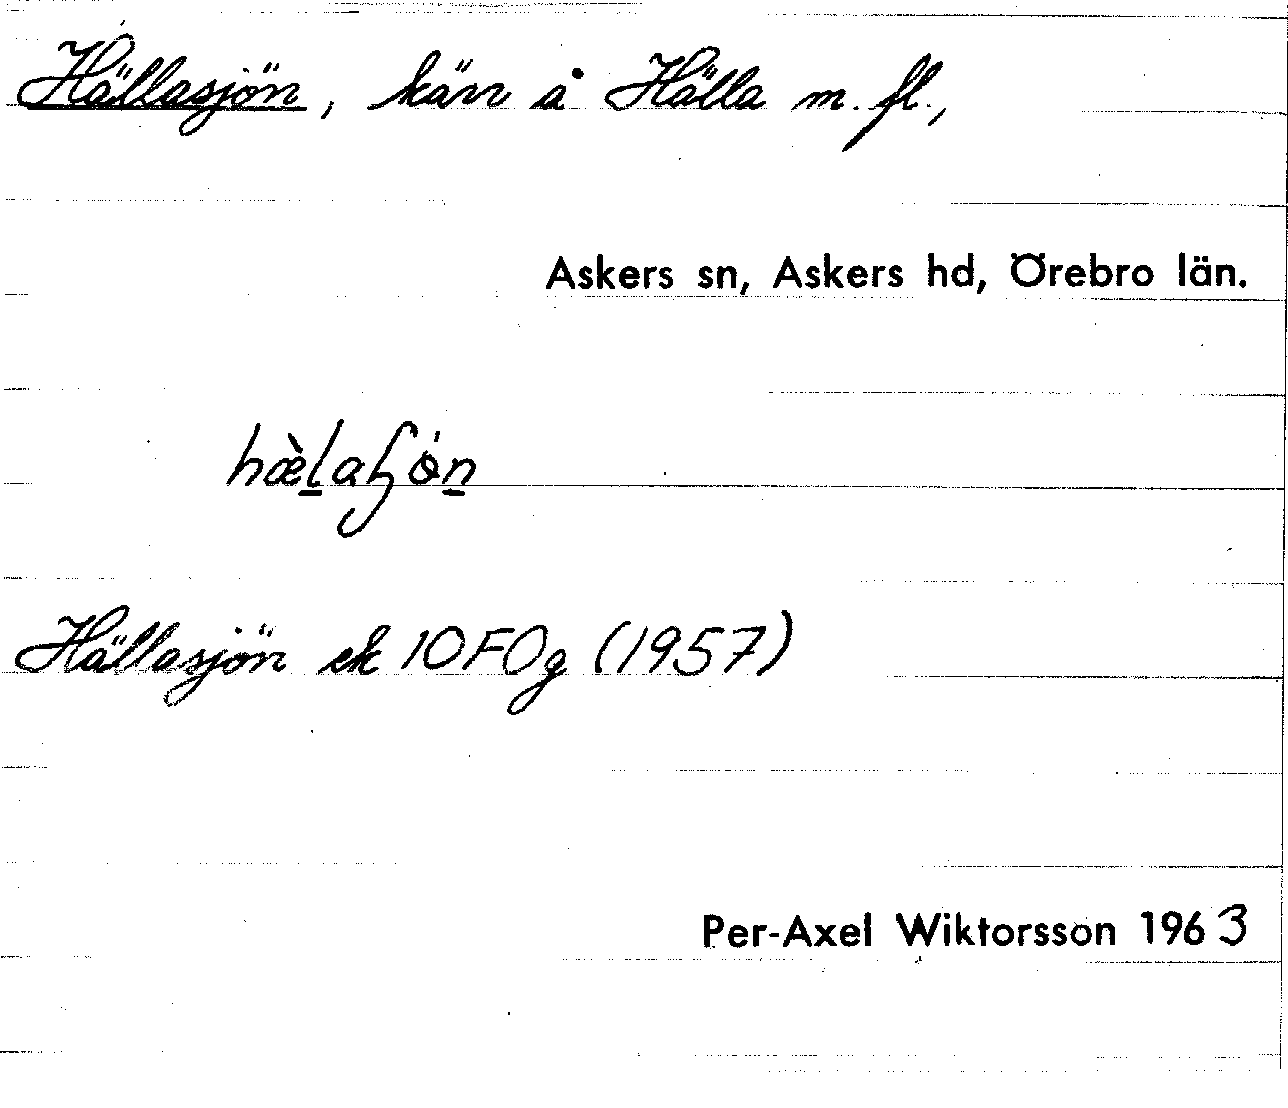 Hällasjön, kärr å Hälla m. fl.,
Askers sn, Askers hd, Örebro län.
Hällasjön ek 10F0g (1957)
Per-Axel Wiktorsson 1963